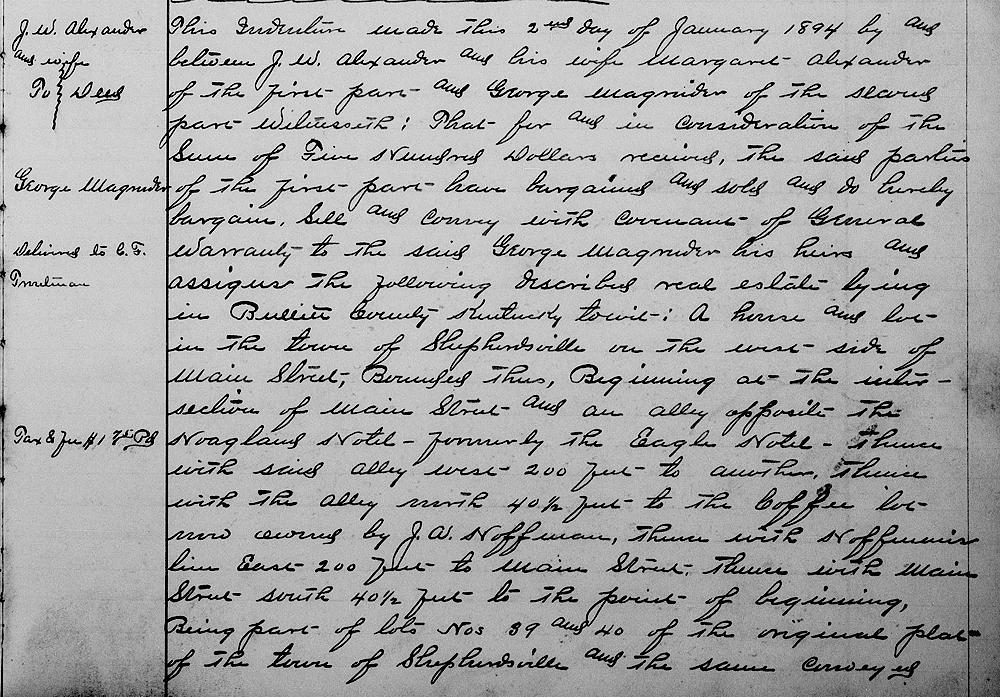 J. W. Alexander
and wife
To } Deed
George Magruder
Delivered to C. F.
Troutman
Tax & Fee $1 75 Pd
This Indenture made this 2nd day of January 1894 by and
between J. W. Alexander and his wife Margaret Alexander
of the first part and George Magruder of the second
part Witnesseth: That for and in consideration of the
Sum of Five Hundred Dollars received, the said parties
of the first part have bargained and sold and do hereby
bargain, Sell and Convey with covenant of General
Warranty to the said George Magruder his heirs and
assigns the following described real estate lying
in Bullitt County Kentucky towit: A house and lot
in the town of Shepherdsville on the west side of
Main Street, Bounded thus, Beginning at the inter-
section of Main Street and an alley opposite the
Hoagland Hotel - formerly the Eagle Hotel - thence
with said alley west 200 feet to another, thence
with the alley north 40½ feet to the Coffee lot
now owned by J. A. Hoffman, thence with Hoffmans
line East 200 feet to Main Street, thence with Main
Street south 40½ feet to the point of beginning,
Being part of lots Nos 39 and 40 of the original plat
of the town of Shepherdsville and the same conveyed